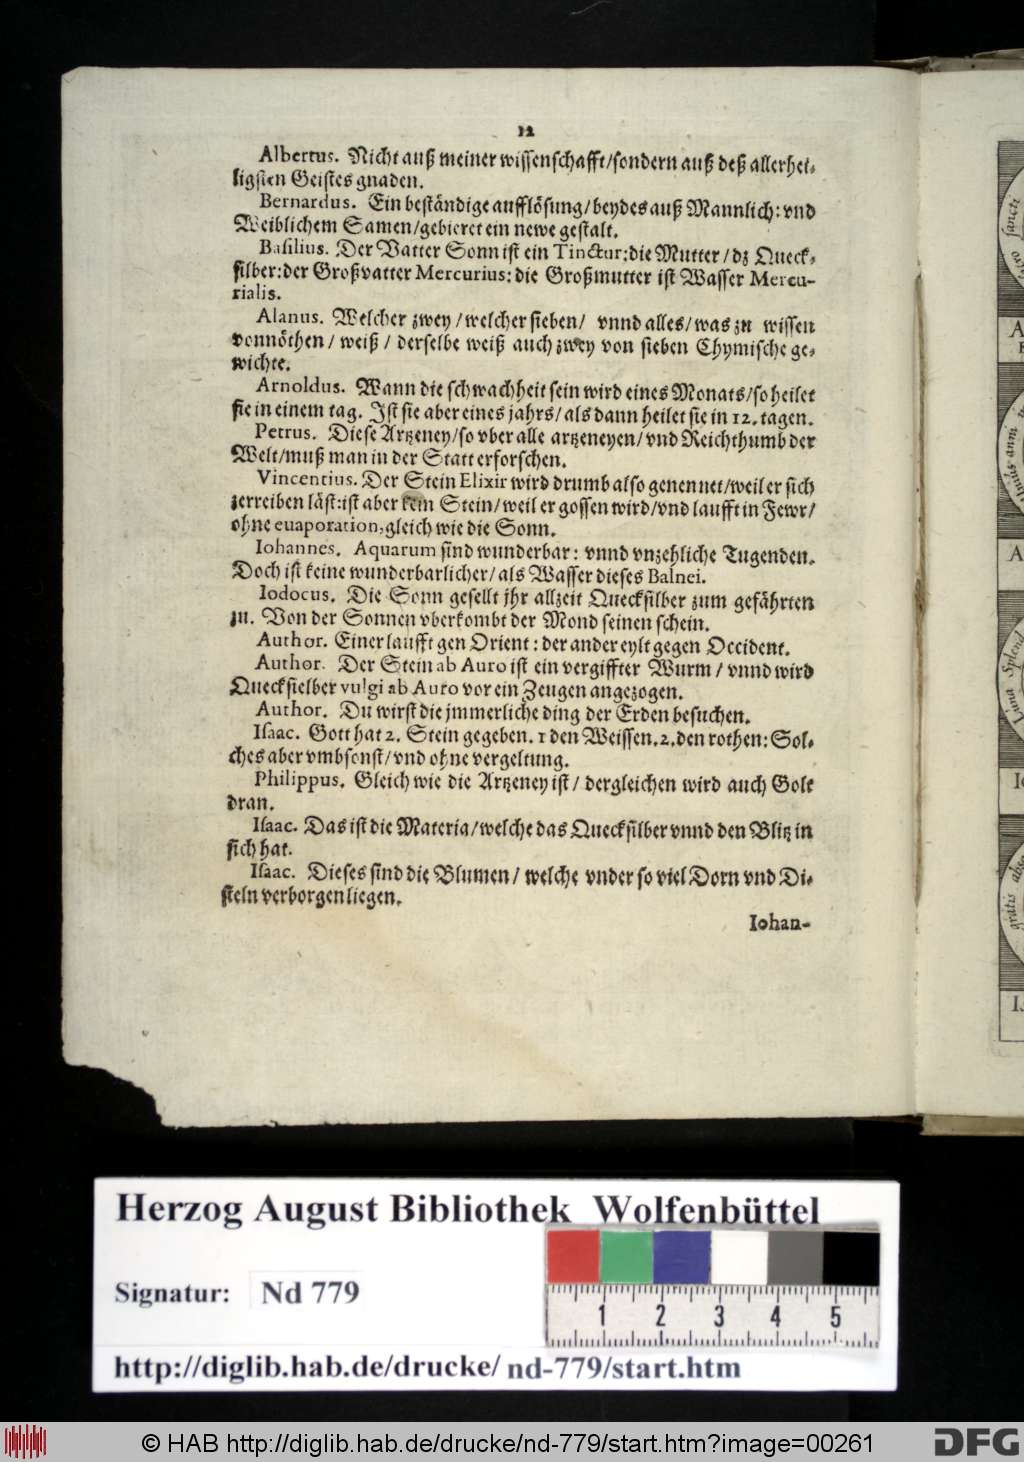 12
Albertus. Nicht auß meiner wissenschafft/sondern auß deß allerhei-
ligsten Geistes gnaden.
Bernardus. Ein beständige aufflösung/beydes auß Mannlich: vnd
Weiblichem Samen/gebieret ein newe gestalt.
Basilius. Der Vatter Sonn ist ein Tinctur:die Mutter/dz Queck-
silber:der Großvatter Mercurius:die Großmutter ist Wasser Mercu-
rialis.
Alanus. Welcher zwey/welcher sieben/ vnnd alles/was zu wissen
vonnöthen/ weiß/ derselbe weiß auch zwey von sieben Chymische ge-
wichte.
Arnoldus. Wann die schwachheit sein wird eines Monats/so heilet
sie in einem tag. Ist sie aber eines jahrs/als dann heilet sie in 12. tagen.
Petrus. Diese Artzeney/so vber alle artzeneyen/vnd Reichthumb der
Welt/muß man in der Statt erforschen.
Vincentius. Der Stein Elixir wird drumb also genennet/weil er sich
zerreiben läst:ist aber kein Stein/weil er gossen wird/vnd laufft in Fewr/
ohne euaporation,gleich wie die Sonn.
Iohannes. Aquarum sind wunderbar: vnnd vnzehliche Tugenden.
Doch ist keine wunderbarlicher/als Wasser dieses Balnei.
Iodocus. Die Sonn gesellt jhr allzeit Quecksilber zum gefährten
zu. Von der Sonnen vberkombt der Mond seinen schein.
Author. Einer laufft gen Orient: der ander eylt gegen Occident.
Author. Der Stein ab Auro ist ein vergiffter Wurm/ vnnd wird
Quecksielber vulgi ab Auro vor ein Zeugen angezogen.
Author. Du wirst die jmmerliche ding der Erden besuchen.
Isaac. Gott hat 2. Stein gegeben. 1 den Weissen. 2. den rothen: Sol-
ches aber vmbsonst/vnd ohne vergeltung.
Philippus. Gleich wie die Artzeney ist/ dergleichen wird auch Golt
dran.
Isaac. Das ist die Materia/welche das Quecksilber vnnd den Blitz in
sich hat.
Isaac. Dieses sind die Blumen/ welche vnder so viel Dorn vnd Di-
steln verborgen liegen.
Iohan-
Herzog August Bibliothek Wolfenbüttel
Signatur: Nd 779
1 2 3 4 5
http://diglib.hab.de/drucke/ nd-779/start.htm
© HAB http://diglib.hab.de/drucke/nd-779/start.htm?image=00261
DFG